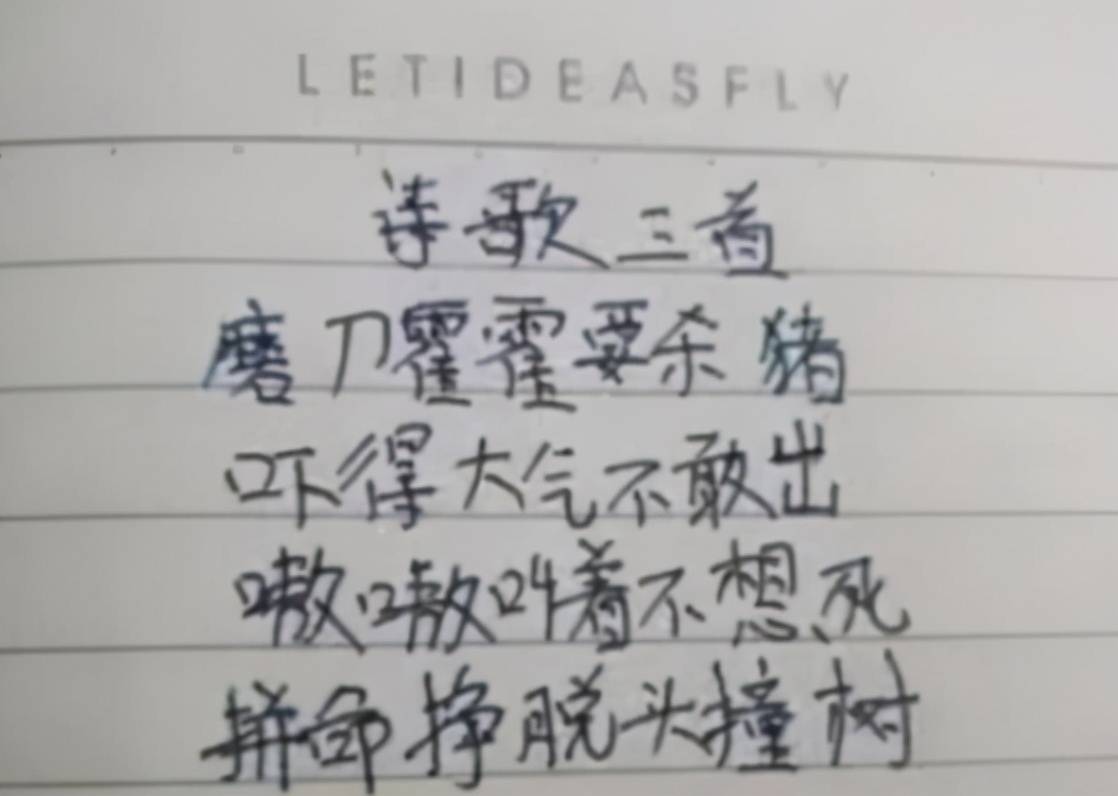 LETIDEASFLY
诗歌三首
磨刀霍霍要杀猪
吓得大气不敢出
嗷嗷叫着不想死
拼命挣脱头撞树